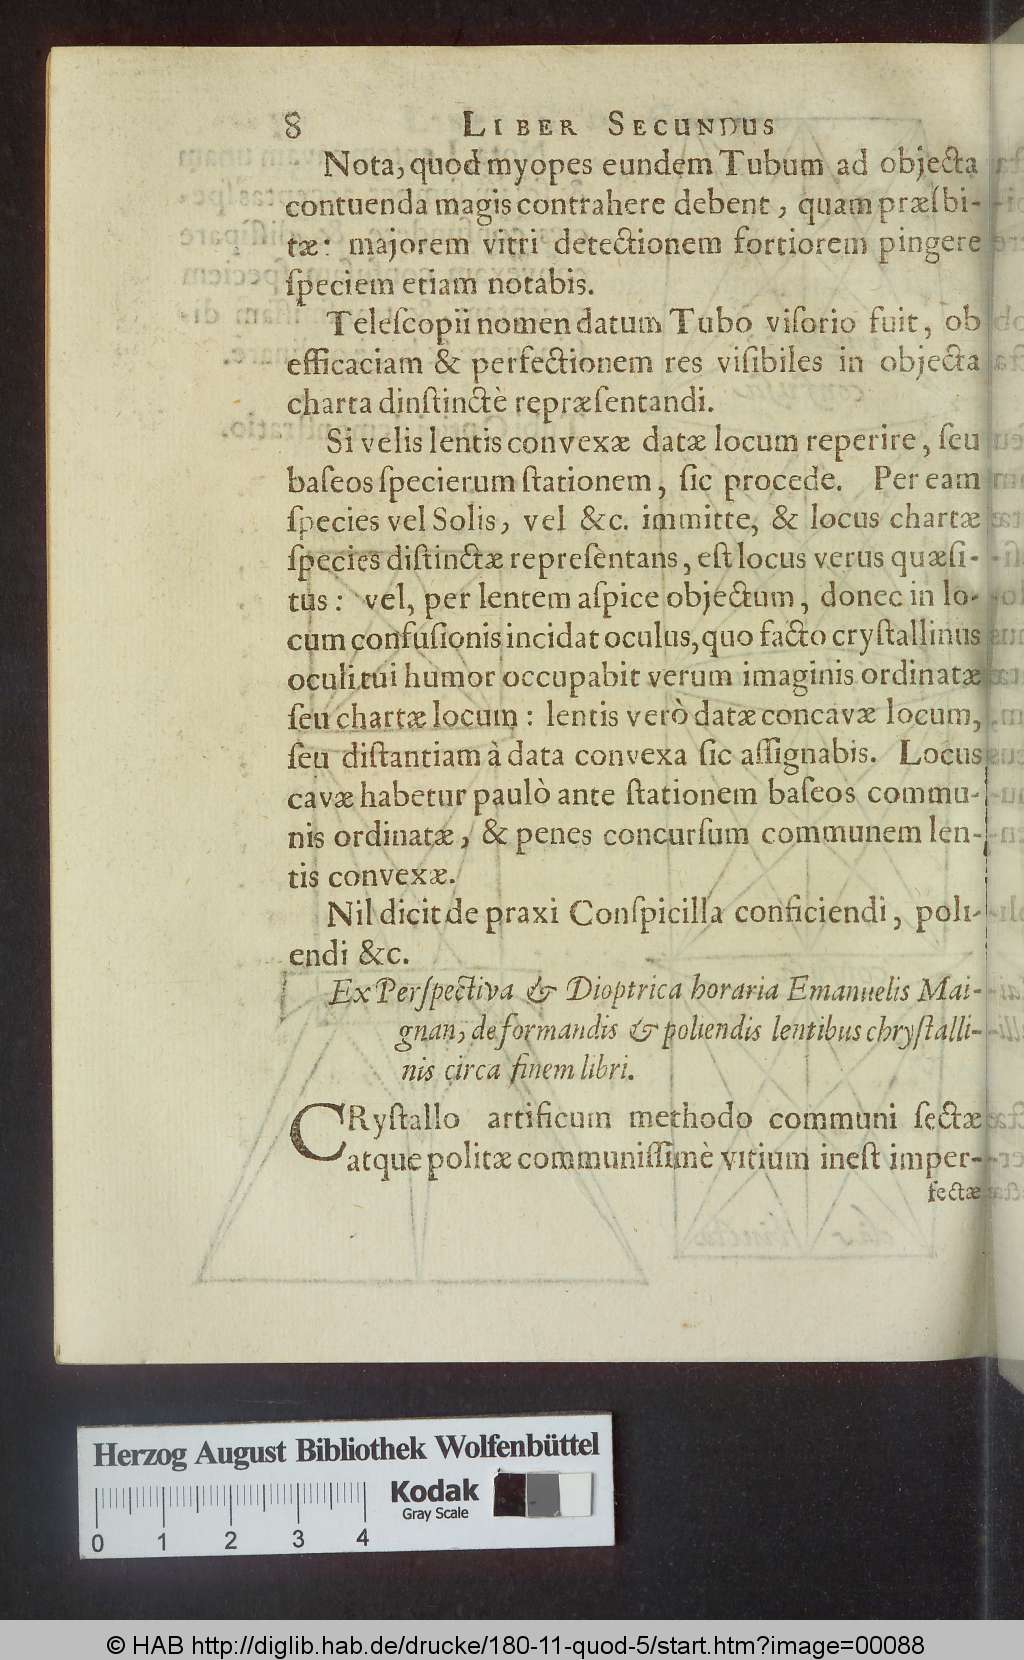 8 LIBER SECUNDUS
Nota, quod myopes eundem Tubum ad objecta
contuenda magis contrahere debent, quam præſbi-
tæ: majorem vitri detectionem fortiorem pingere
ſpeciem etiam notabis.
Teleſcopii nomen datum Tubo viſorio fuit, ob
efficaciam & perfectionem res viſibiles in objecta
charta dinſtinctè repræſentandi.
Si velis lentis convexæ datæ locum reperire, ſeu
baſeos ſpecierum ſtationem, ſic procede. Per eam
ſpecies vel Solis, vel &c. immitte, & locus chartæ
ſpecies diſtinctæ repreſentans, eſt locus verus quæſi-
tus: vel, per lentem aſpice objectum, donec in lo-
cum confuſionis incidat oculus, quo facto cryſtallinus
oculi tui humor occupabit verum imaginis ordinatæ
ſeu chartæ locum: lentis verò datæ concavæ locum,
ſeu diſtantiam à data convexa ſic aſſignabis. Locus
cavæ habetur paulò ante ſtationem baſeos commu-
nis ordinatæ, & penes concurſum communem len-
tis convexæ.
Nil dicit de praxi Conſpicilla conficiendi, poli-
endi &c.
Ex Perſpectiva & Dioptrica horaria Emanuelis Mai-
gnan, de formandis & poliendis lentibus chryſtalli-
nis circa finem libri.
CRyſtallo artificum methodo communi ſectæ
atque politæ communiſſimè vitium ineſt imper-
fectæ
Herzog August Bibliothek Wolfenbüttel
Kodak
Gray Scale
0 1 2 3 4
© HAB http://diglib.hab.de/drucke/180-11-quod-5/start.htm?image=00088